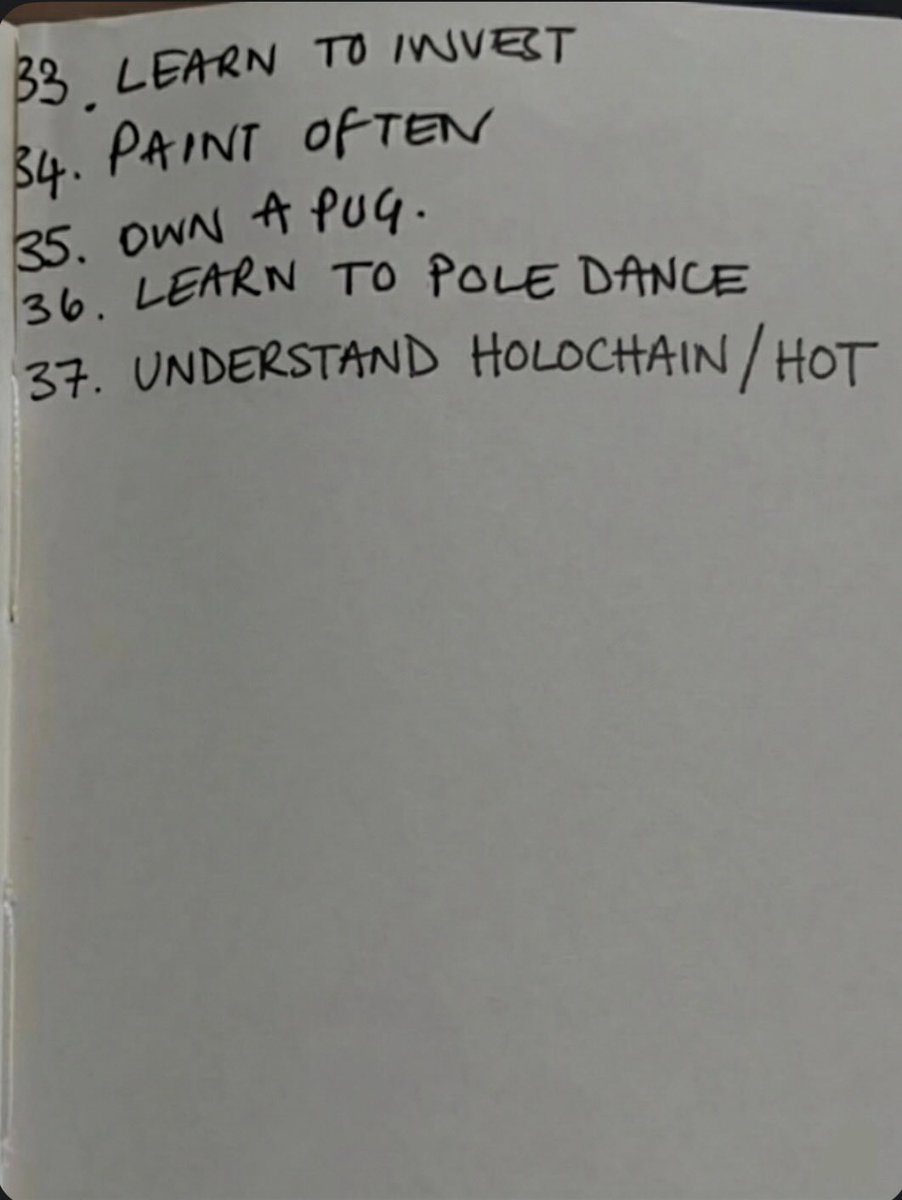 33. LEARN TO INVEST
34. PAINT OFTEN
35. OWN A PUG.
36. LEARN TO POLE DANCE
37. UNDERSTAND HOLOCHAIN/HOT